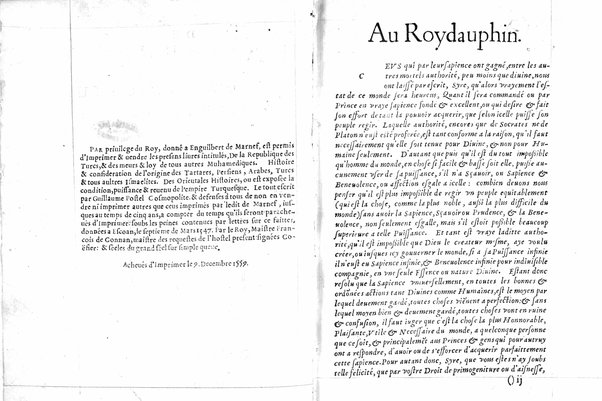 PAR priuilege du Roy, donné a Enguilbert de Marnef, est permis
d'imprimer & uendre les presens liures intitulés, De la Republique des
Turcs, & des meurs & loy de tous autres Muhamediques. Histoire
& consideration de l'origine des Tartares, Persiens, Arabes, Turcs
& tous aultres Ismaelites. Des Orientales Histoires, ou est exposée la
condition, puissance & reuenu de l'empire Turquesque. Le tout escrit
par Guillaume Postel Cosmopolite. & defenses à tous de non en ven-
dre ni imprimer autres que ceus imprimés par ledit de Marnef, ius-
ques au temps de cinq ans, a compter du temps qu'ils seront paracheu-
ués d'imprimer: soubs les peines contenues par lettres sur ce faittes,
données a
Acheués d'Imprimer le 9. Decembre 1559.
Au Roydauphin.
CEVS qui par leur sapience ont gagné, entre les au-
tres mortels authorité, peu moins que diuine, nous
ont laissé par escrit, Syre, qu'alors vrayement l'es-
tat de ce monde sera heureus, Quant il sera commandé ou par
Prince en vraye sapience fondé & excellent, ou qui desire & fait
son effort de tant la pouoir acquerir, que selon icelle puisse son
peuple regir. Laquelle authorité, encores que de Socrates ne de
Platon n'eust esté proferée, est tant conforme a la raison, qu'il faut
necessairement qu'elle soit tenue pour Diuine, & non pour Hu-
maine seulement. D'autant que puis qu'il est du tout impossible
qu'homme du monde, en chose si facile & basse soit elle, puisse du-
cunement vser de sa puissance, s'il n'a sçauoir, ou Sapience &
Beneuolence, ou affection esgale a icelle: combien deuons nous
penser qu'il est plus impossible de regir vn peuple equitablement
(qui est la chose, comme la plus noble, aussi la plus difficile du
monde) sans auoir la Sapience, Sçauoir ou Prudence, & la Bene-
uolence, non seulement esgale, mais s'il estoit possible beaucoup
superieure a telle Puissance. Et tant est vraye laditte authori-
té, qu'il est impossible que Dieu le createur mesme, aye voulu
créer, ou iusques icy gouuerner le monde, si a sa Puissance infinie
il n'eust eu Sapience infinie, & Beneuolence infinie pour indiuisible
compagnie, en vne seule Essence ou nature Diuine. Estant donc
resolu que la Sapience vniuersellement, en toutes les bonnes &
ordōnées actions tant Diuines comme Humaines, est le moyen par
lequel deuement gardé, toutes choses viēnent a perfection: & sans
lequel moyen bien & deuement gardé, toutes choses vont en ruine
& confusion, il faut iuger que c'est la chose la plus Honnorable,
Plaisante, Vtile & Necessaire du monde, a quelconque personne
que ce soit, & principalemēt aus Princes & gens qui pour autruy
ont a respondre, d'auoir ou de s'efforcer d'acquerir parfaittement
cette sapience. Pour autant donc, Syre, que vous estes n'ay soubs
telle felicité, que par vostre Droit de primogeniture ou d'aisnesse,
() ij